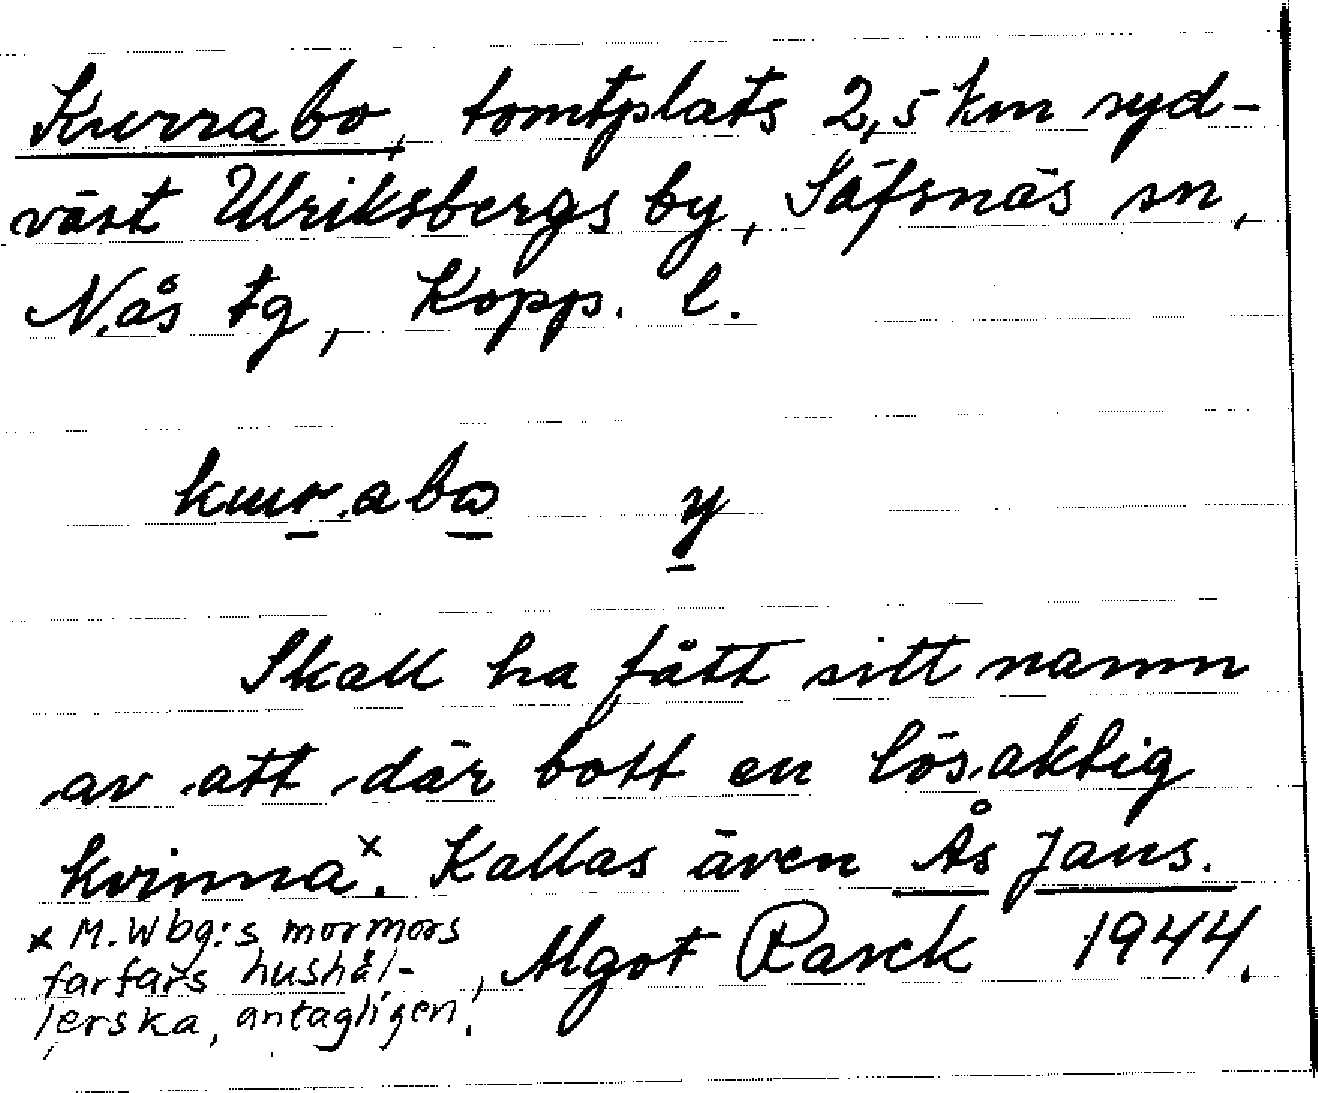 Kurrabo, tomtplats 2,5 km syd-
väst Ulriksbergs by, Säfsnäs sn,
Nås tg, Kopp. l.
kur.abo y
Skall ha fått sitt namn
av att där bott en lösaktig
kvinna x. Kallas även Ås Jans.
x M. Wbg:s mormors
farfars hushål-
lerska, antagligen.
Algot Rasck 1944.